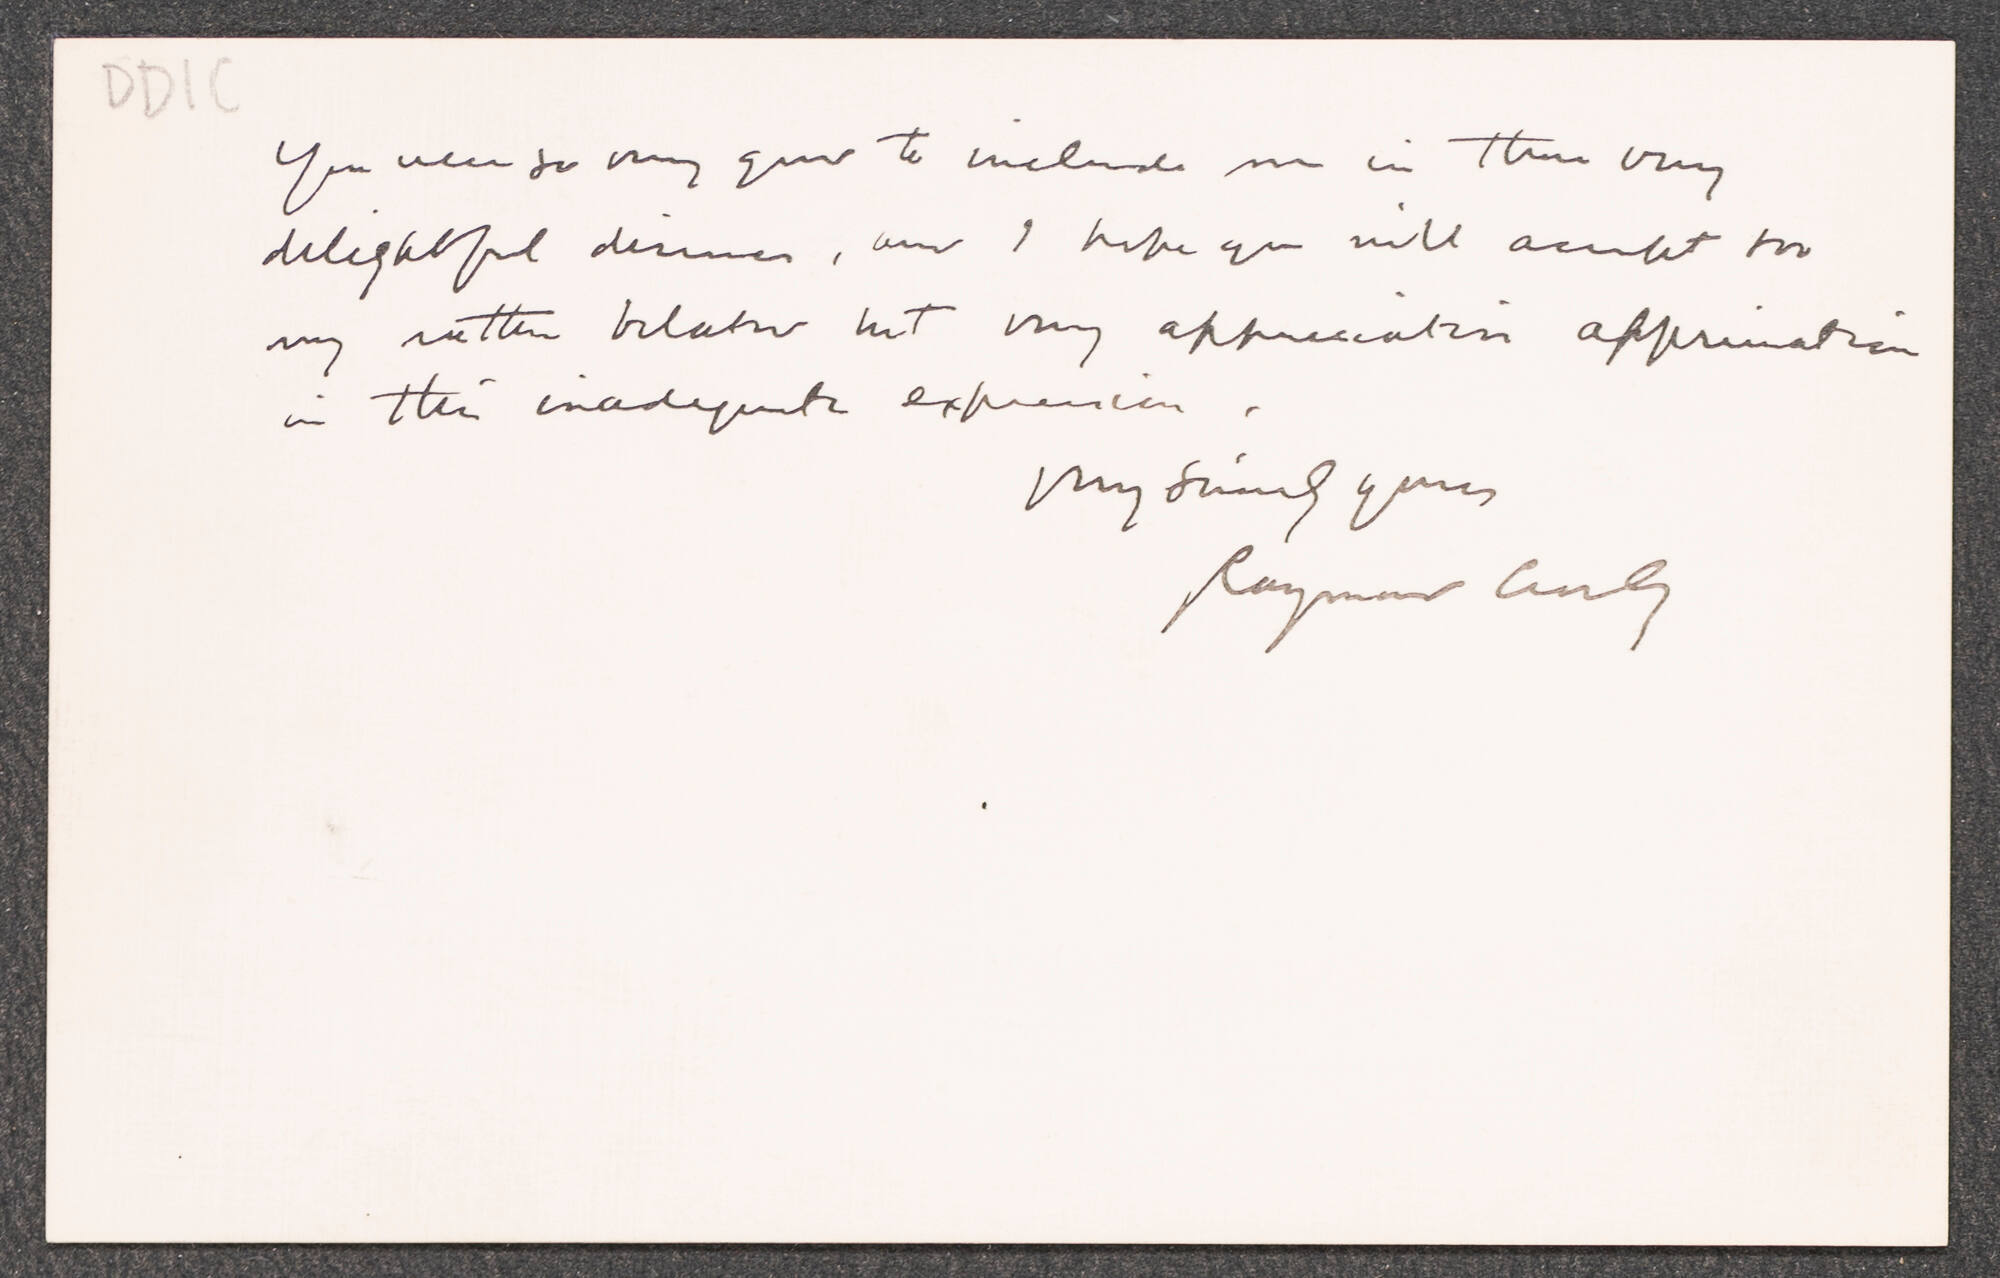 DDIC
You were so very good to include me in these very
delightful dinners, and I hope you will accept too
my rather belated but very appreciative
in this inadequate expression.
Very sincerely yours
Raymond